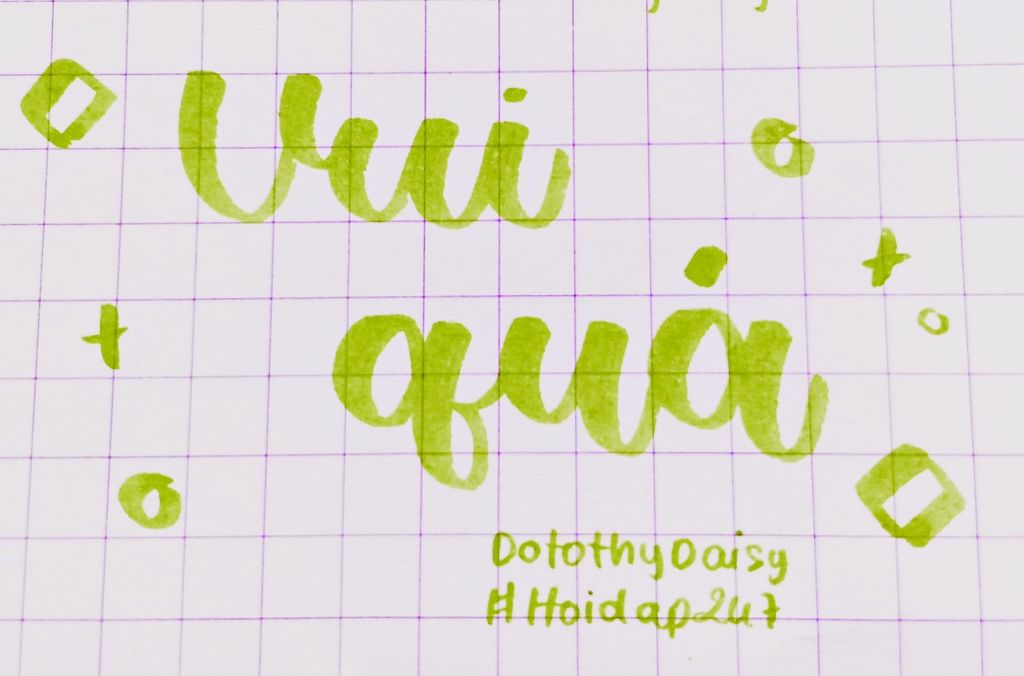 Vui
quá
DotothyDaisy
#Hoidap247